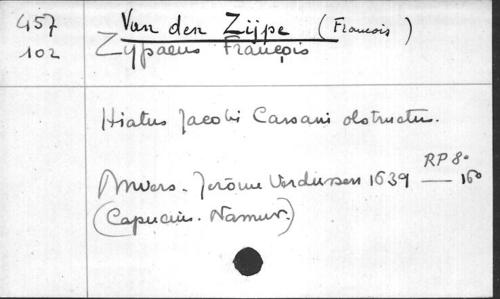 457
102
Van den Zijpe (Francois)
Zypaeus François
Hiatus Jacobi Cassani obstructus.
RP 8°
Anvers. Jerôme Verdussen 1639 — 160
(Capucins. Namur.)